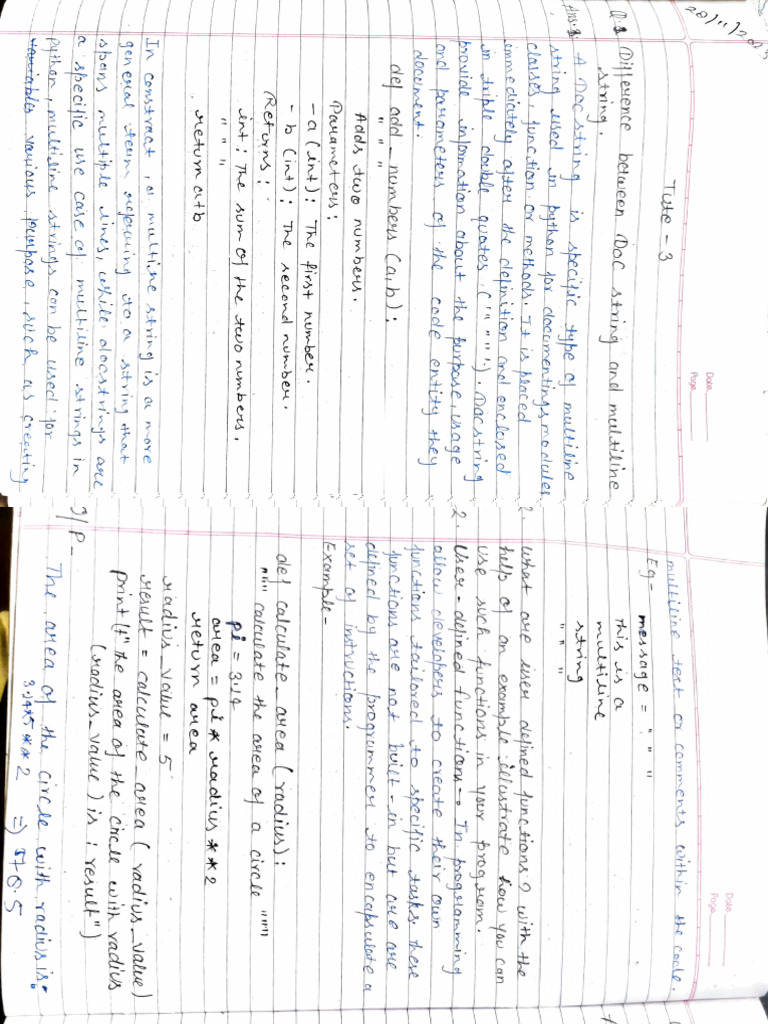 Date
Page
Tute - 3
Q.1 Difference between Doc string and multiline
string.
Ans.1: A Doc string is specific type of multiline
string used in python for documentings modules
classes, function or methods. It is placed
immediately after the definition and enclosed
in triple double quotes (" " " " "). Docstring
provide information about the purpose, usage
and parameters of the code entity they
document.
def add - numbers (a, b):
" " "
Adds two numbers.
Parameters:
- a (int): The first number.
- b (int): The second number.
Returns:
int: The sum of the two numbers.
" " "
return a+b
In constract, a multiline string is a more
general term referring to a string that
spans multiple lines, while docstrings are
a specific use case of multiline strings in
python, multiline strings can be used for
various purpose, such as creating
Date
Page
multiline text or comments within the code.
Eg- message = " " "
This is a
multiline
string
" " "
2. What are user defined functions? with the
help of an example illustrate how you can
use such functions in your program.
2. User-defined functions → In programming
allow developers to create their own
functions tailored to specific tasks. these
functions are not built-in but are are
defined by the programmer to encapsulate a
set of intructions.
Example-
def calculate_area (radius):
""" calculate the area of a circle """
pi = 3.14
area = pi * radius ** 2
return area
radius_value = 5
result = calculate_area (radius_value)
print (f" the area of the circle with radius
(radius_value) is : result")
O/P -
The area of the circle with radius is:
3.14*5**2 ⇒ 78.5